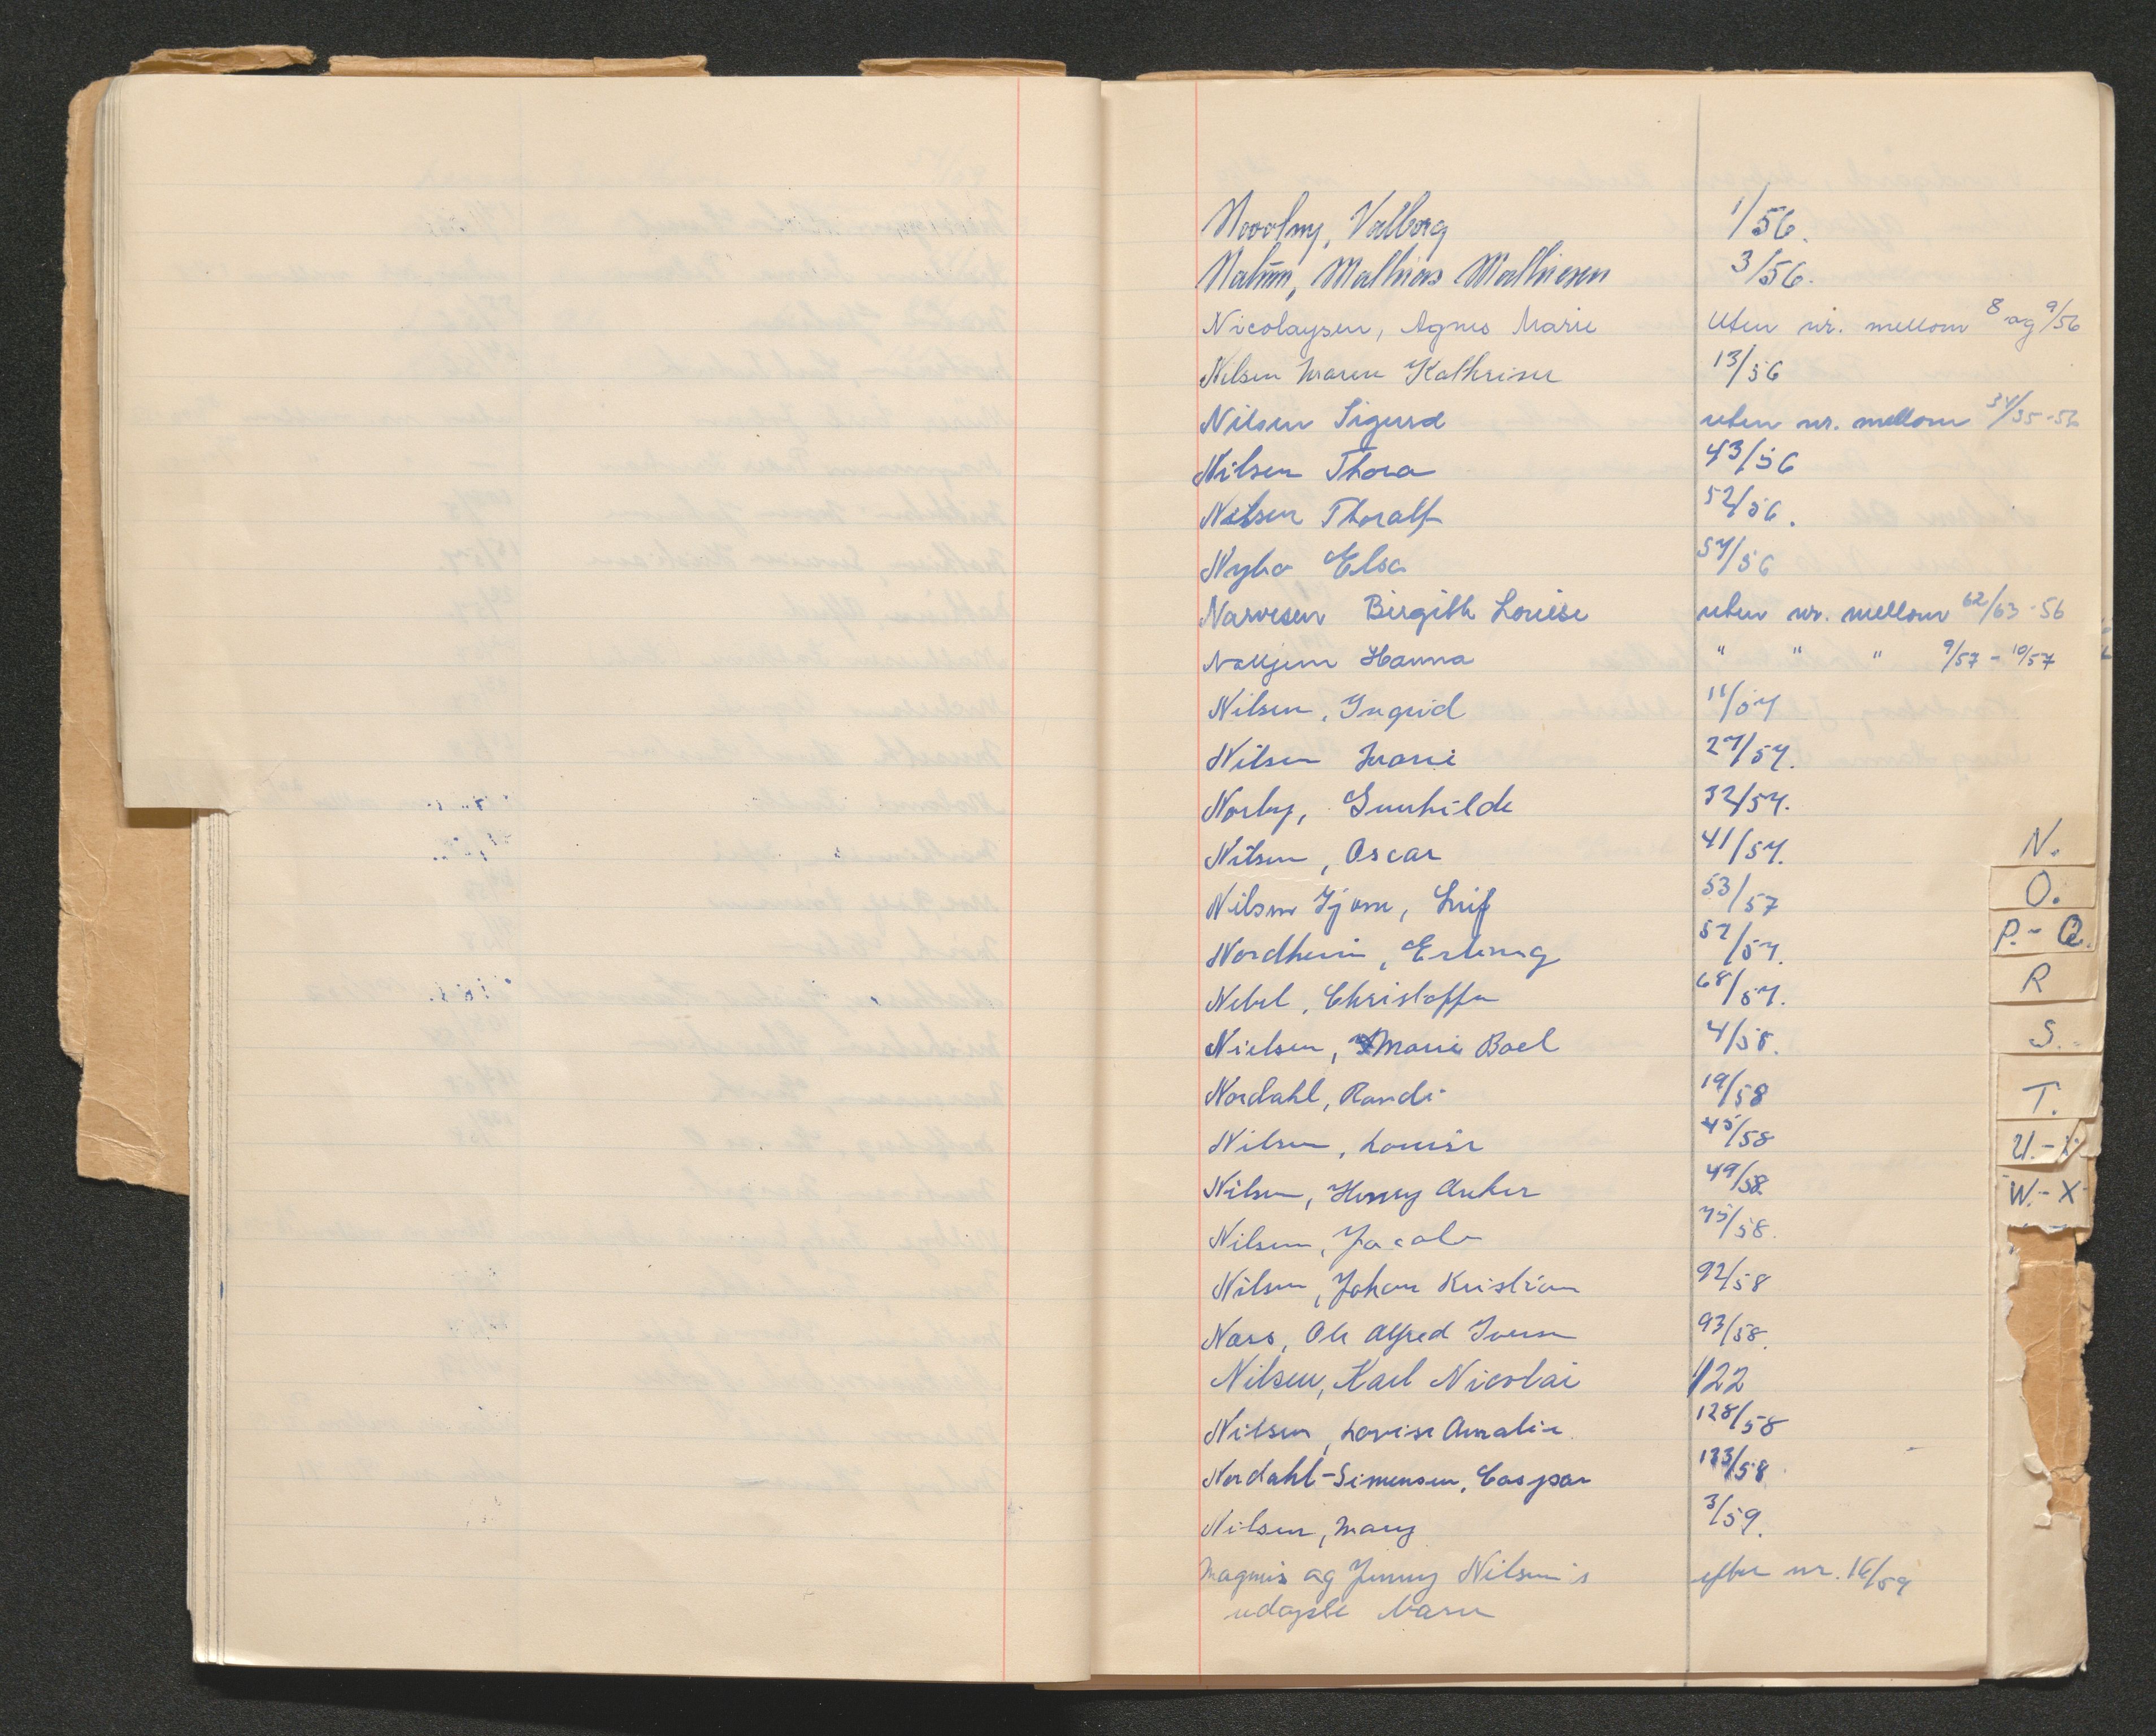 Novotny, Valborg 1/56.
Mathias Mathiesen 3/56.
Nicolaysen, Agnes Marie Uten nr. mellom 8 og 9/56
Nilsen Maren Kathrine 13/56
Nilsen Sigurd uten nr. mellom 34/35-56
Nilsen Thora 43/56
Nilsen Thoralf 52/56.
Nybo Elsa 57/56
Narvesen Birgith Louise uten nr. mellom 62/63-56
Hanna " " " 9/57 - 10/57
Nilsen, Ingrid 11/57
Nilsen Marie 27/57.
Norby, Gunhilde 32/57.
Nilsen, Oscar 41/57.
Nilsen Gjom, Leif 53/57
Nordheim, Erling 57/57.
Nebel, Christoffer 68/57.
Nielsen, Marie Boel 4/58.
Nordahl, Randi 19/58
Nilsen, Louise 45/58
Nilsen, Henry Anker 49/58.
Nilsen, Jacob 75/58.
Nilsen, Johan Kristian 92/58
Nass, Ole Alfred Iversen 93/58.
Nilsen, Karl Nicolai 122
Nilsen, Lovise Amalie 128/58
Nordahl-Simensen, Caspar 133/58
Nilsen, Mary 3/59.
Magnus og Jenny Nilsen's efter nr. 16/59
udøpte barn
N.
O.
P.- Q.
R
S.
T.
U.-
W.-X